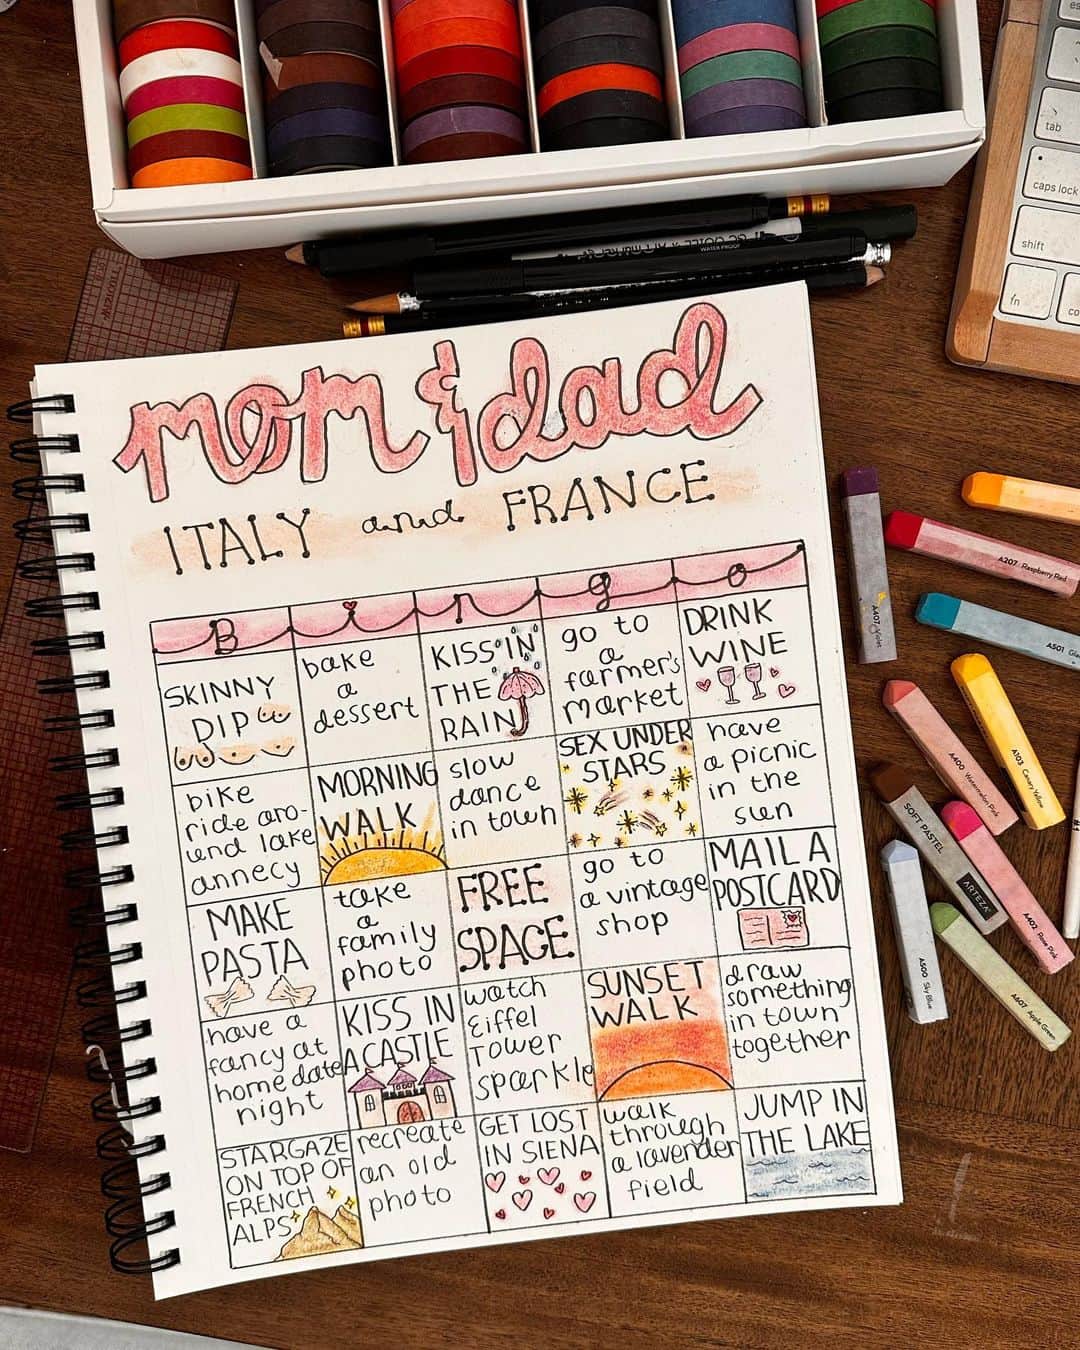 tab
caps lock
shift
fn
WATER PROOF
mom & dad
ITALY and FRANCE
B i n g o
SKINNY
DIP
bake
a
dessert
KISS IN
THE
RAIN
go to
a
farmer's
market
DRINK
WINE
bike
ride aro-
und lake
annecy
MORNING
WALK
slow
dance
in town
SEX UNDER
STARS
have
a picnic
in the
sun
MAKE
PASTA
take
a
family
photo
FREE
SPACE
go to
a vintage
shop
MAIL A
POSTCARD
have a
fancy at
home date
night
KISS IN
A CASTLE
watch
Eiffel
Tower
sparkle
SUNSET
WALK
draw
something
in town
together
STARGAZE
ON TOP OF
FRENCH
ALPS
recreate
an old
photo
GET LOST
IN SIENA
walk
through
a lavender
field
JUMP IN
THE LAKE
A407 Violet
A207 Raspberry Red
A501
A103 Canary Yellow
A400 Watermelon Pink
SOFT PASTEL
ARTEZA
A402 Rose Pink
A500 Sky Blue
A607 Apple Green